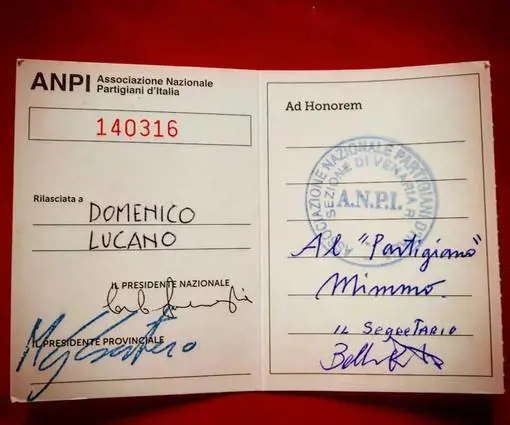 ANPI Associazione Nazionale
Partigiani d'Italia
140316
Rilasciata a
DOMENICO
LUCANO
IL PRESIDENTE NAZIONALE
IL PRESIDENTE PROVINCIALE
Ad Honorem
ASSOCIAZIONE NAZIONALE PARTIGIANI D'
SEZIONE DI VENARIA R
A.N.P.I.
Al "Partigiano"
Mimmo.
IL SEGRETARIO